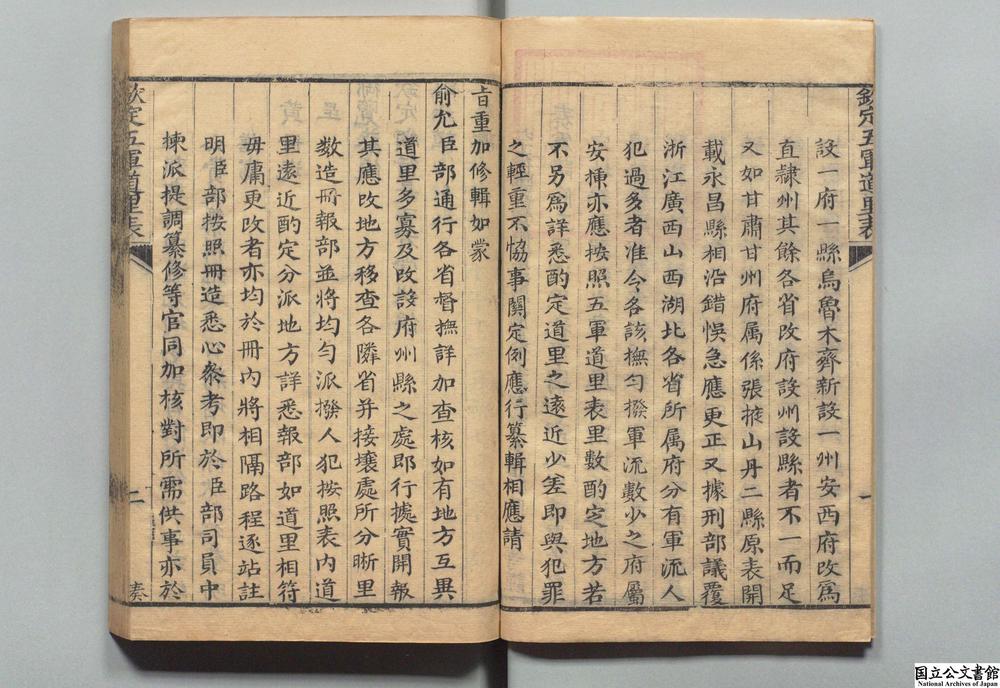 欽定五軍道里表
一
設一府一縣烏魯木齊新設一州安西府改為
直隷州其餘各省改府設州設縣者不一而足
又如甘肅甘州府属係張掖山丹二縣原表開
載永昌縣相沿錯悞急應更正又據刑部議覆
浙江廣西山西湖北各省所属府分有軍流人
犯過多者准令各該撫勻撥軍流數少之府屬
安揷亦應按照五軍道里表里數酌定地方若
不另為詳悉酌定道里之遠近少差即與犯罪
之輕重不恊事關定例應行纂輯相應請
旨重加修輯如蒙
俞允臣部通行各省督撫詳加查核如有地方互異
道里多寡及改設府州縣之處即行據實開報
其應改地方移查各隣省并接壤處所分晰里
數造冊報部並將均勻派撥人犯按照表内道
里遠近酌定分派地方詳悉報部如道里相符
毋庸更改者亦均於冊内將相隔路程逐站註
明臣部按照冊造悉心叅考即於臣部司員中
揀派提調纂修等官同加核對所需供事亦於
欽定五軍道里表
二
奏
国立公文書館
National Archives of Japan